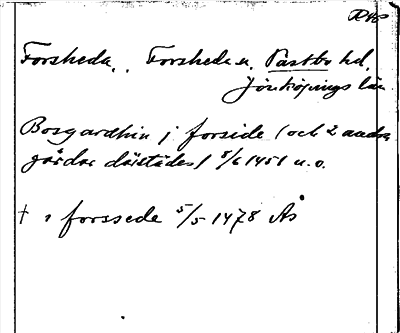 Forsheda, Forsheda sn, Västbo hd,
Jönköpings län
Bosgardhin j forside (och 2 andra
gårdar därstädes) 8/6 1451 u.o.
† i forssede 5/5 1478 Ås